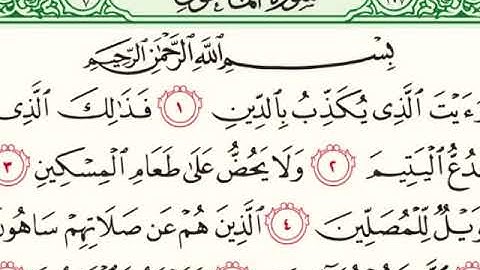 سورة الماعون
بِسْمِ ٱللَّهِ ٱلرَّحْمَٰنِ ٱلرَّحِيمِ
ٱلَّذِى يُكَذِّبُ بِٱلدِّينِ ١ فَذَٰلِكَ ٱلَّذِى
ٱلْيَتِيمَ ٢ وَلَا يَحُضُّ عَلَىٰ طَعَامِ ٱلْمِسْكِينِ ٣
لِّلْمُصَلِّينَ ٤ ٱلَّذِينَ هُمْ عَن صَلَاتِهِمْ سَاهُونَ